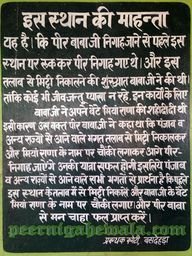 इस स्थान की माहन्ता
यह है। कि पीर बाबा जी निगाह जाने से पहले इस
स्थान पर रुक कर पीर निगाह गए थे। और इस
तलाब से मिट्टी निकालने की शुरुआत बाबा जी ने की थी।
ताकि कोई भी जीवजन्तु प्यासा न रहे, इन कार्यों के लिए
बाबा जी ने अपने बेटे मियां राणा की शहीदी दी थी
इसी कारण उस वक्त पीर बाबा जी ने कहा था कि पंजाब व
अन्य राज्यों से आने वाले मेरे भगत मिट्टी निकालकर
और मियां राणा के नाम पर चौकी लगाकर आगे पीर-
निगाह जाएंगे उनकी यात्रा सफल होगी इसलिये पंजाब व
अन्य राज्यों से आने वाले सभी भगतों से प्रार्थना है कि पहले
इस स्थान के तलाब में से मिट्टी निकाले और बाबा जी के बेटे
मियां राणा के नाम पर चौकी लगाएं। और पीर बाबा
से मन चाहा फल प्राप्त करें।
प्रबन्धक कमेटी, बसदेहड़ा
peernigahewala.com